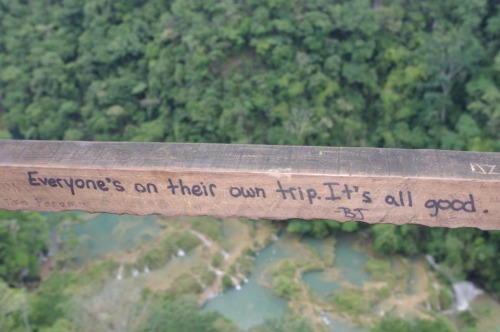 Everyone's on their own trip. It's all good.
-BJ